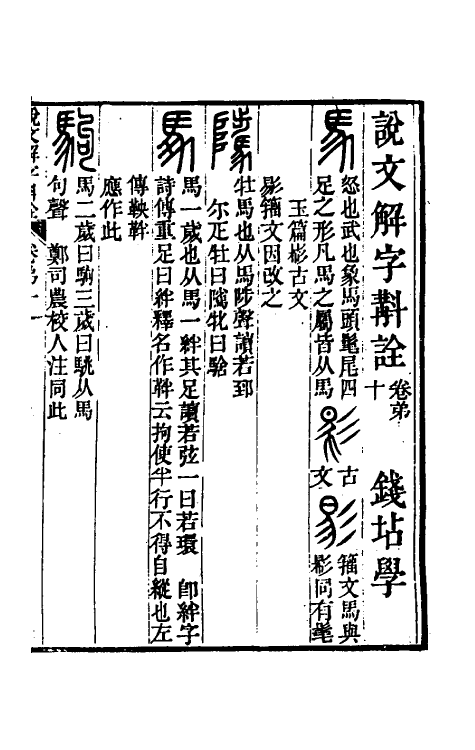 說文解字斠詮 卷弟十 錢坫學
馬 怒也武也象馬頭髦尾四足之形凡馬之屬皆从馬 古文 籒文馬與影同有髦
玉篇影古文
影籒文因改之
騭 牡馬也从馬陟聲讀若郅
尔疋牡曰騭牝曰騇
馬一歲也从馬一絆其足讀若弦一曰若環 卽絆字
詩傳重足曰絆釋名作靽云拘使半行不得自縱也左
傳鞅靽
應作此
駒 馬二歲曰駒三歲曰駣从馬
句聲 鄭司農校人注同此